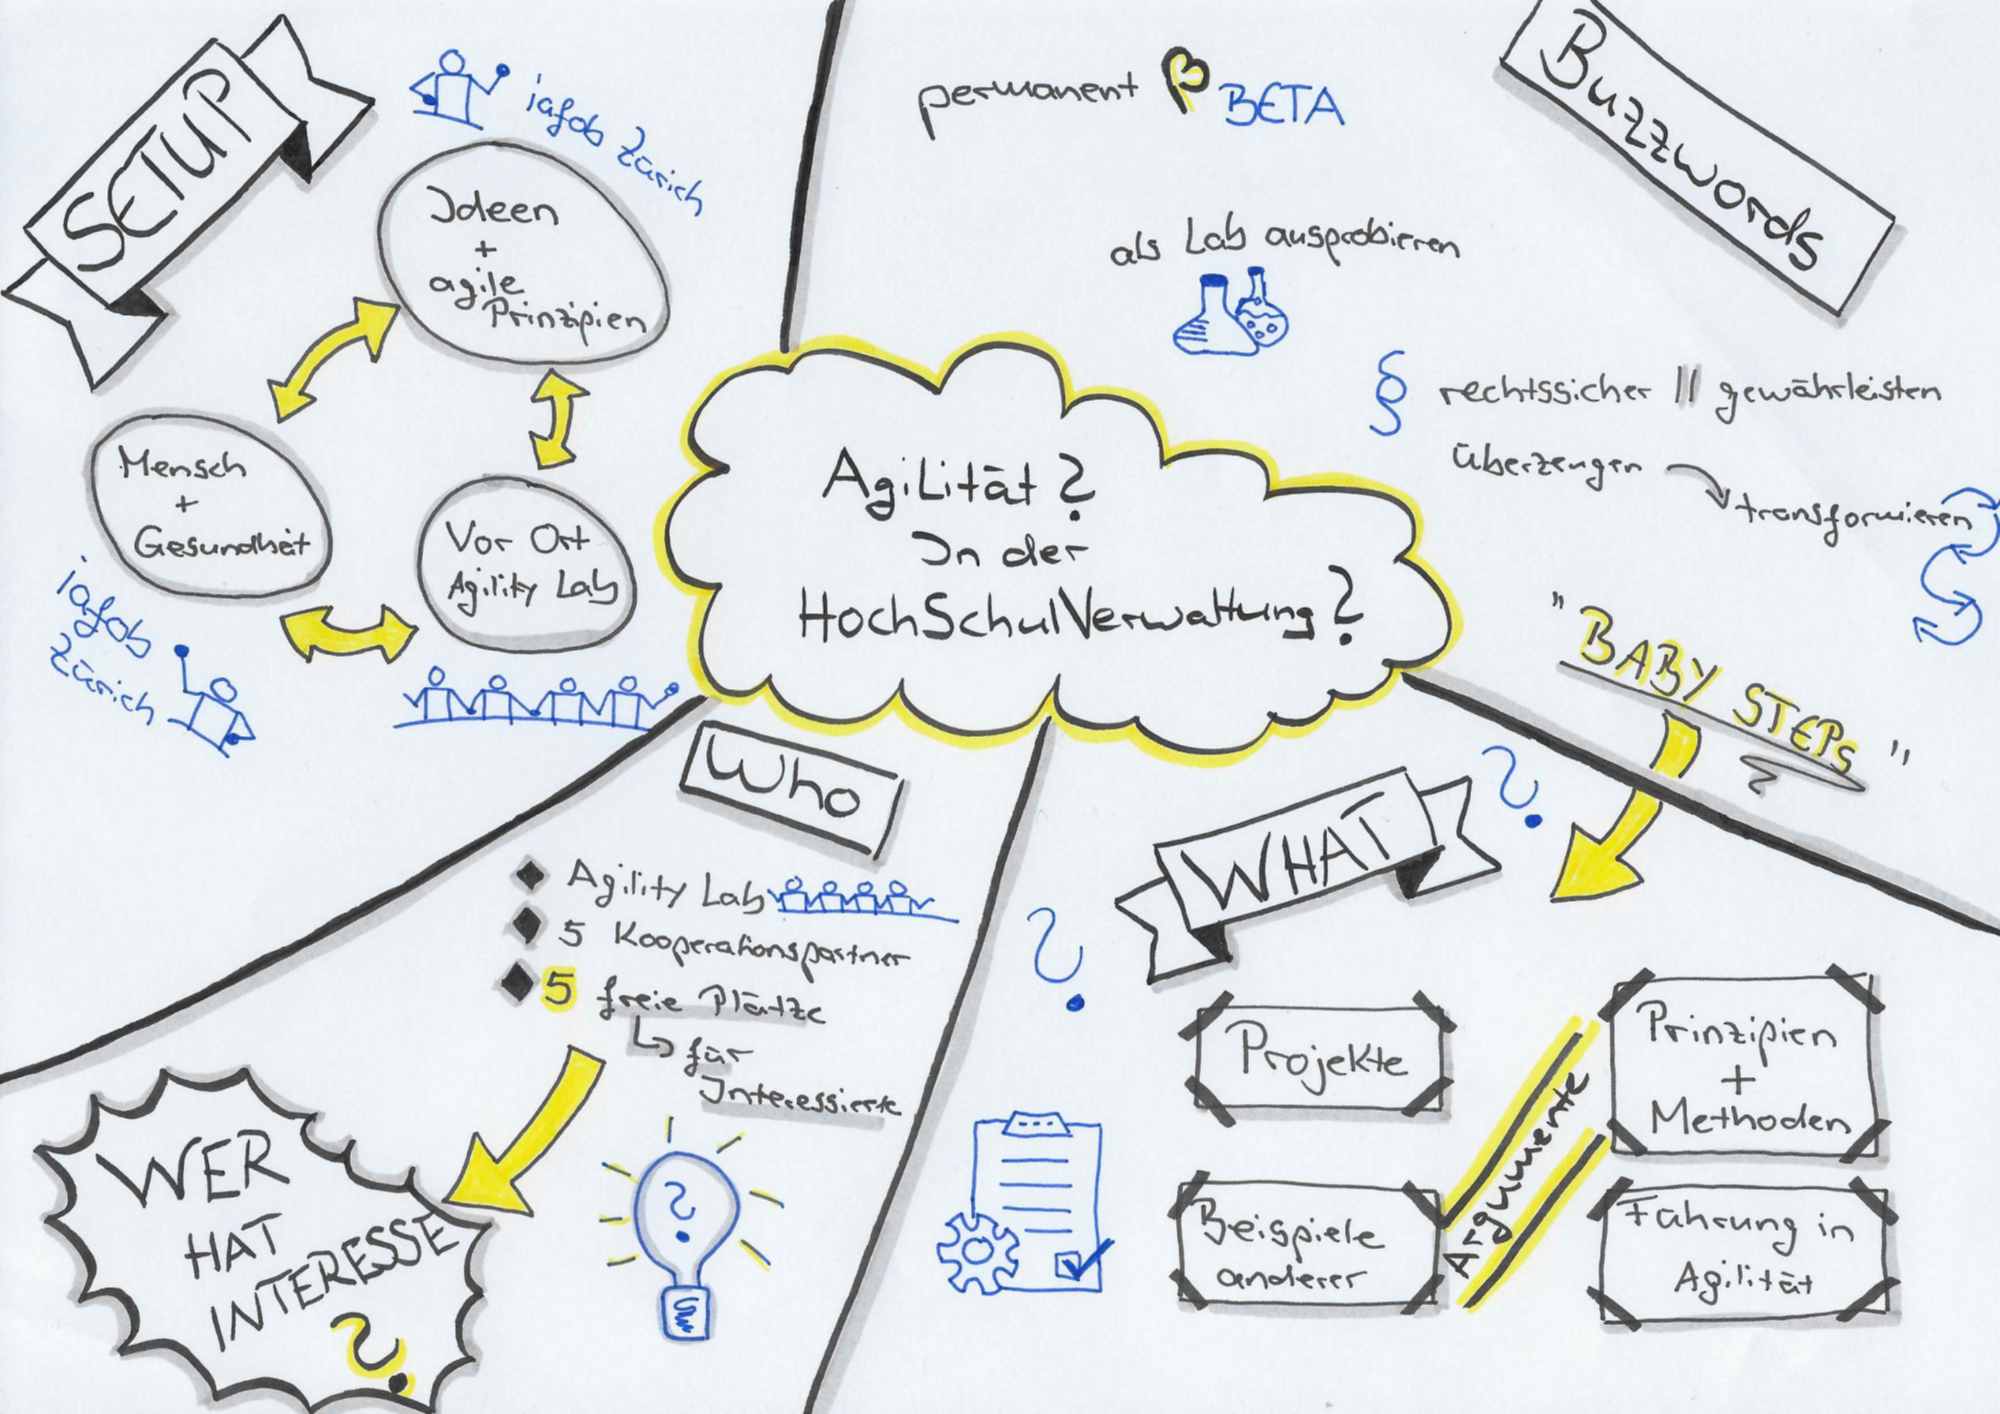 SETUP
iafob Zürich
Ideen
+
agile
Prinzipien
Mensch
+
Gesundheit
iafob
Zürich
Vor Ort
Agility Lab
permanent β BETA
Buzzwords
als Lab ausprobieren
§ rechtssicher || gewährleisten
überzeugen
transformieren
"BABY STEPS"
Agilität?
In der
HochSchulVerwaltung?
Who
Agility Lab
5 Kooperationspartner
5 freie Plätze
für
Interessierte
WER
HAT
INTERESSE
?
?
WHAT
?
?
Projekte
Prinzipien
+
Methoden
Argumente
Beispiele
anderer
Führung in
Agilität